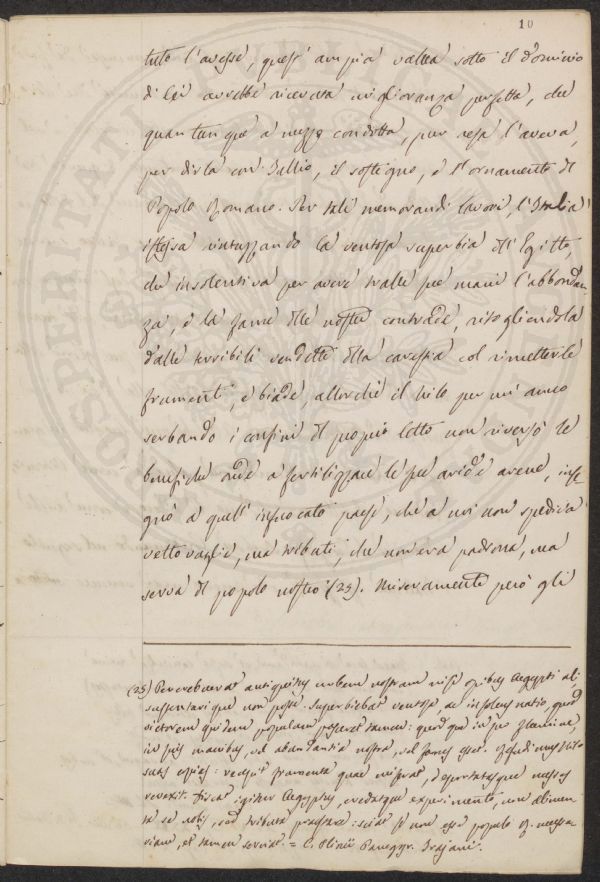 10
tuto l'avesse, quest'ampia vallea sotto il dominio
di Lei avrebbe ricevuta miglioranza perfetta, che
quantunque a mezzo condotta, pur resa l'aveva,
per dirla con Tallio, il sostegno, e l'ornamento del
Popolo Romano. Per tali memorandi lavori, l'Italia
istessa rintuzzando la ventosa superbia dell'Egitto,
che insolentiva per avere nelle sue mani l'abbondan
za, e la fame delle nostre contrade, ritogliendola
dalle terribili vendette della carestia col rimetterle
frumenti, e biade, allorchè il Nilo per un anno
serbando i confini del proprio letto non riversò le
benefiche onde a fertilizzare le sue aride arene, inse
gnò a quell'infuocato paese, che a noi non spediva
vettovaglie, ma tributi, che non era padrona, ma
serva del popolo nostro (25). Miseramente però gli
(25) Percrebuerat antiquitus urbem nostram nisi opibus Aegypti ali,
sustentarique non posse. Superbiebat ventosa, ac insolens natio, quod
victorem quidem populum pasceret tamen: quodque in suo flumine,
in suis manibus, vel abundantia nostra, vel fames esset. Refudimus Nilo
suas copias: recepit frumenta quae miserat, deportatasque messes
revexit. Discat igitur Aegyptus, credatque experimento, non alimen
ta se nobis, sed tributa praestare: sciat se non esse populo R. necessa
riam, et tamen serviat. = C. Plinii Panegyr. Trajani.